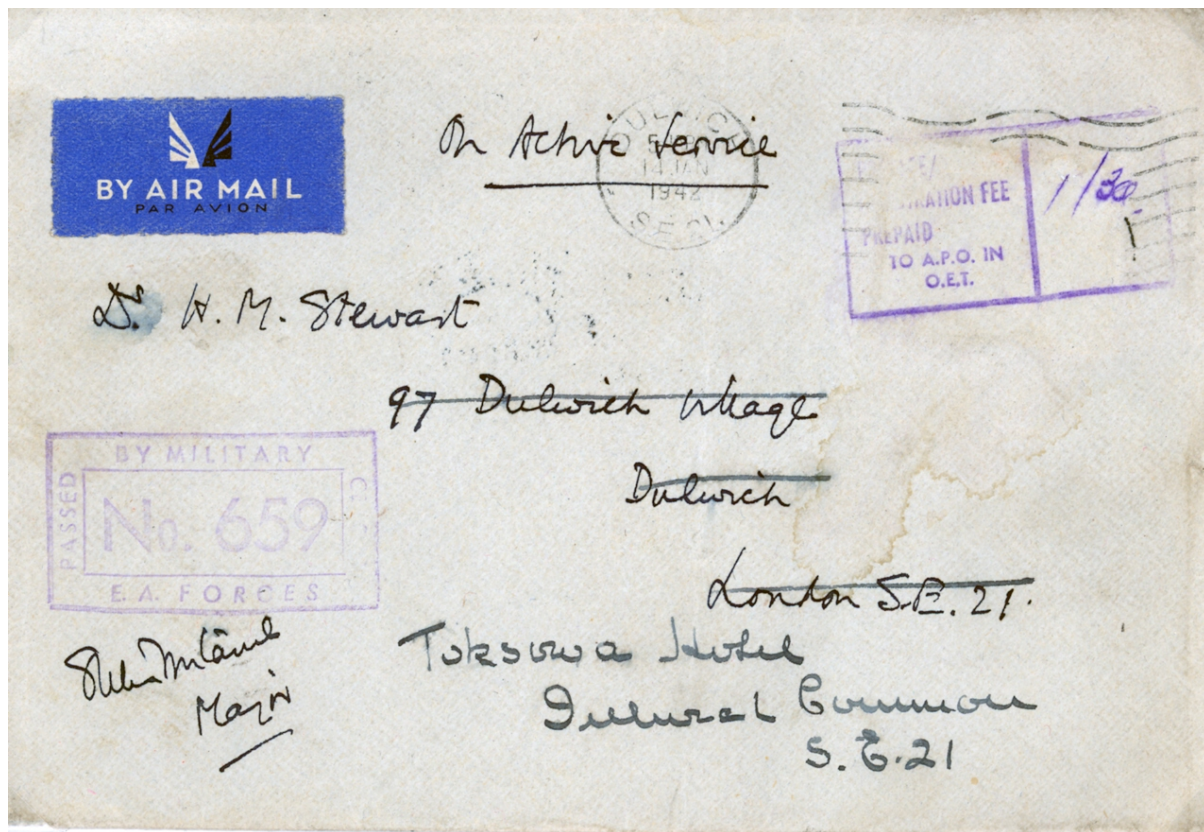 BY AIR MAIL
PAR AVION
On Active Service
DULWICH
14 JAN
1942
S.E.21.
FEE
PREPAID
TO A.P.O. IN
O.E.T.
1/30
Dr. H. M. Stewart
97 Dulwich Village
Dulwich
London S.E. 21.
PASSED
BY MILITARY
No. 659
E.A. FORCES
Major
Toksowa Hotel
Common
S.E.21